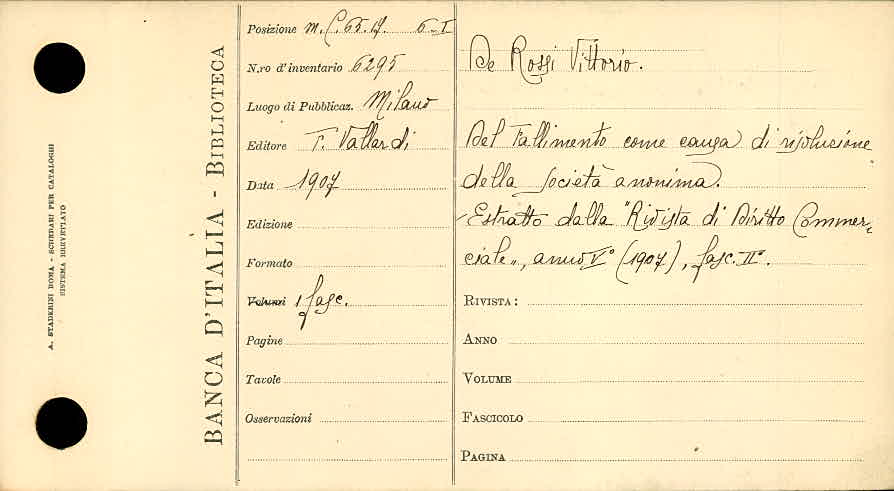 A. STADERINI ROMA - SCHEDARI PER CATALOGHI
SISTEMA BREVETTATO
BANCA D'ITALIA - BIBLIOTECA
Posizione m. C. 65. 6-I
N.ro d'inventario 6295
Luogo di Pubblicaz. Milano
Editore F. Vallardi
Data 1907
Edizione
Formato
Volumi 1 fasc.
Pagine
Tavole
Osservazioni
De Rossi Vittorio.
Del Fallimento come causa di risoluzione
della società anonima.
-Estratto dalla "Rivista di Diritto Commer-
ciale", anno V° (1907), fasc. II°.
RIVISTA:
ANNO
VOLUME
FASCICOLO
PAGINA